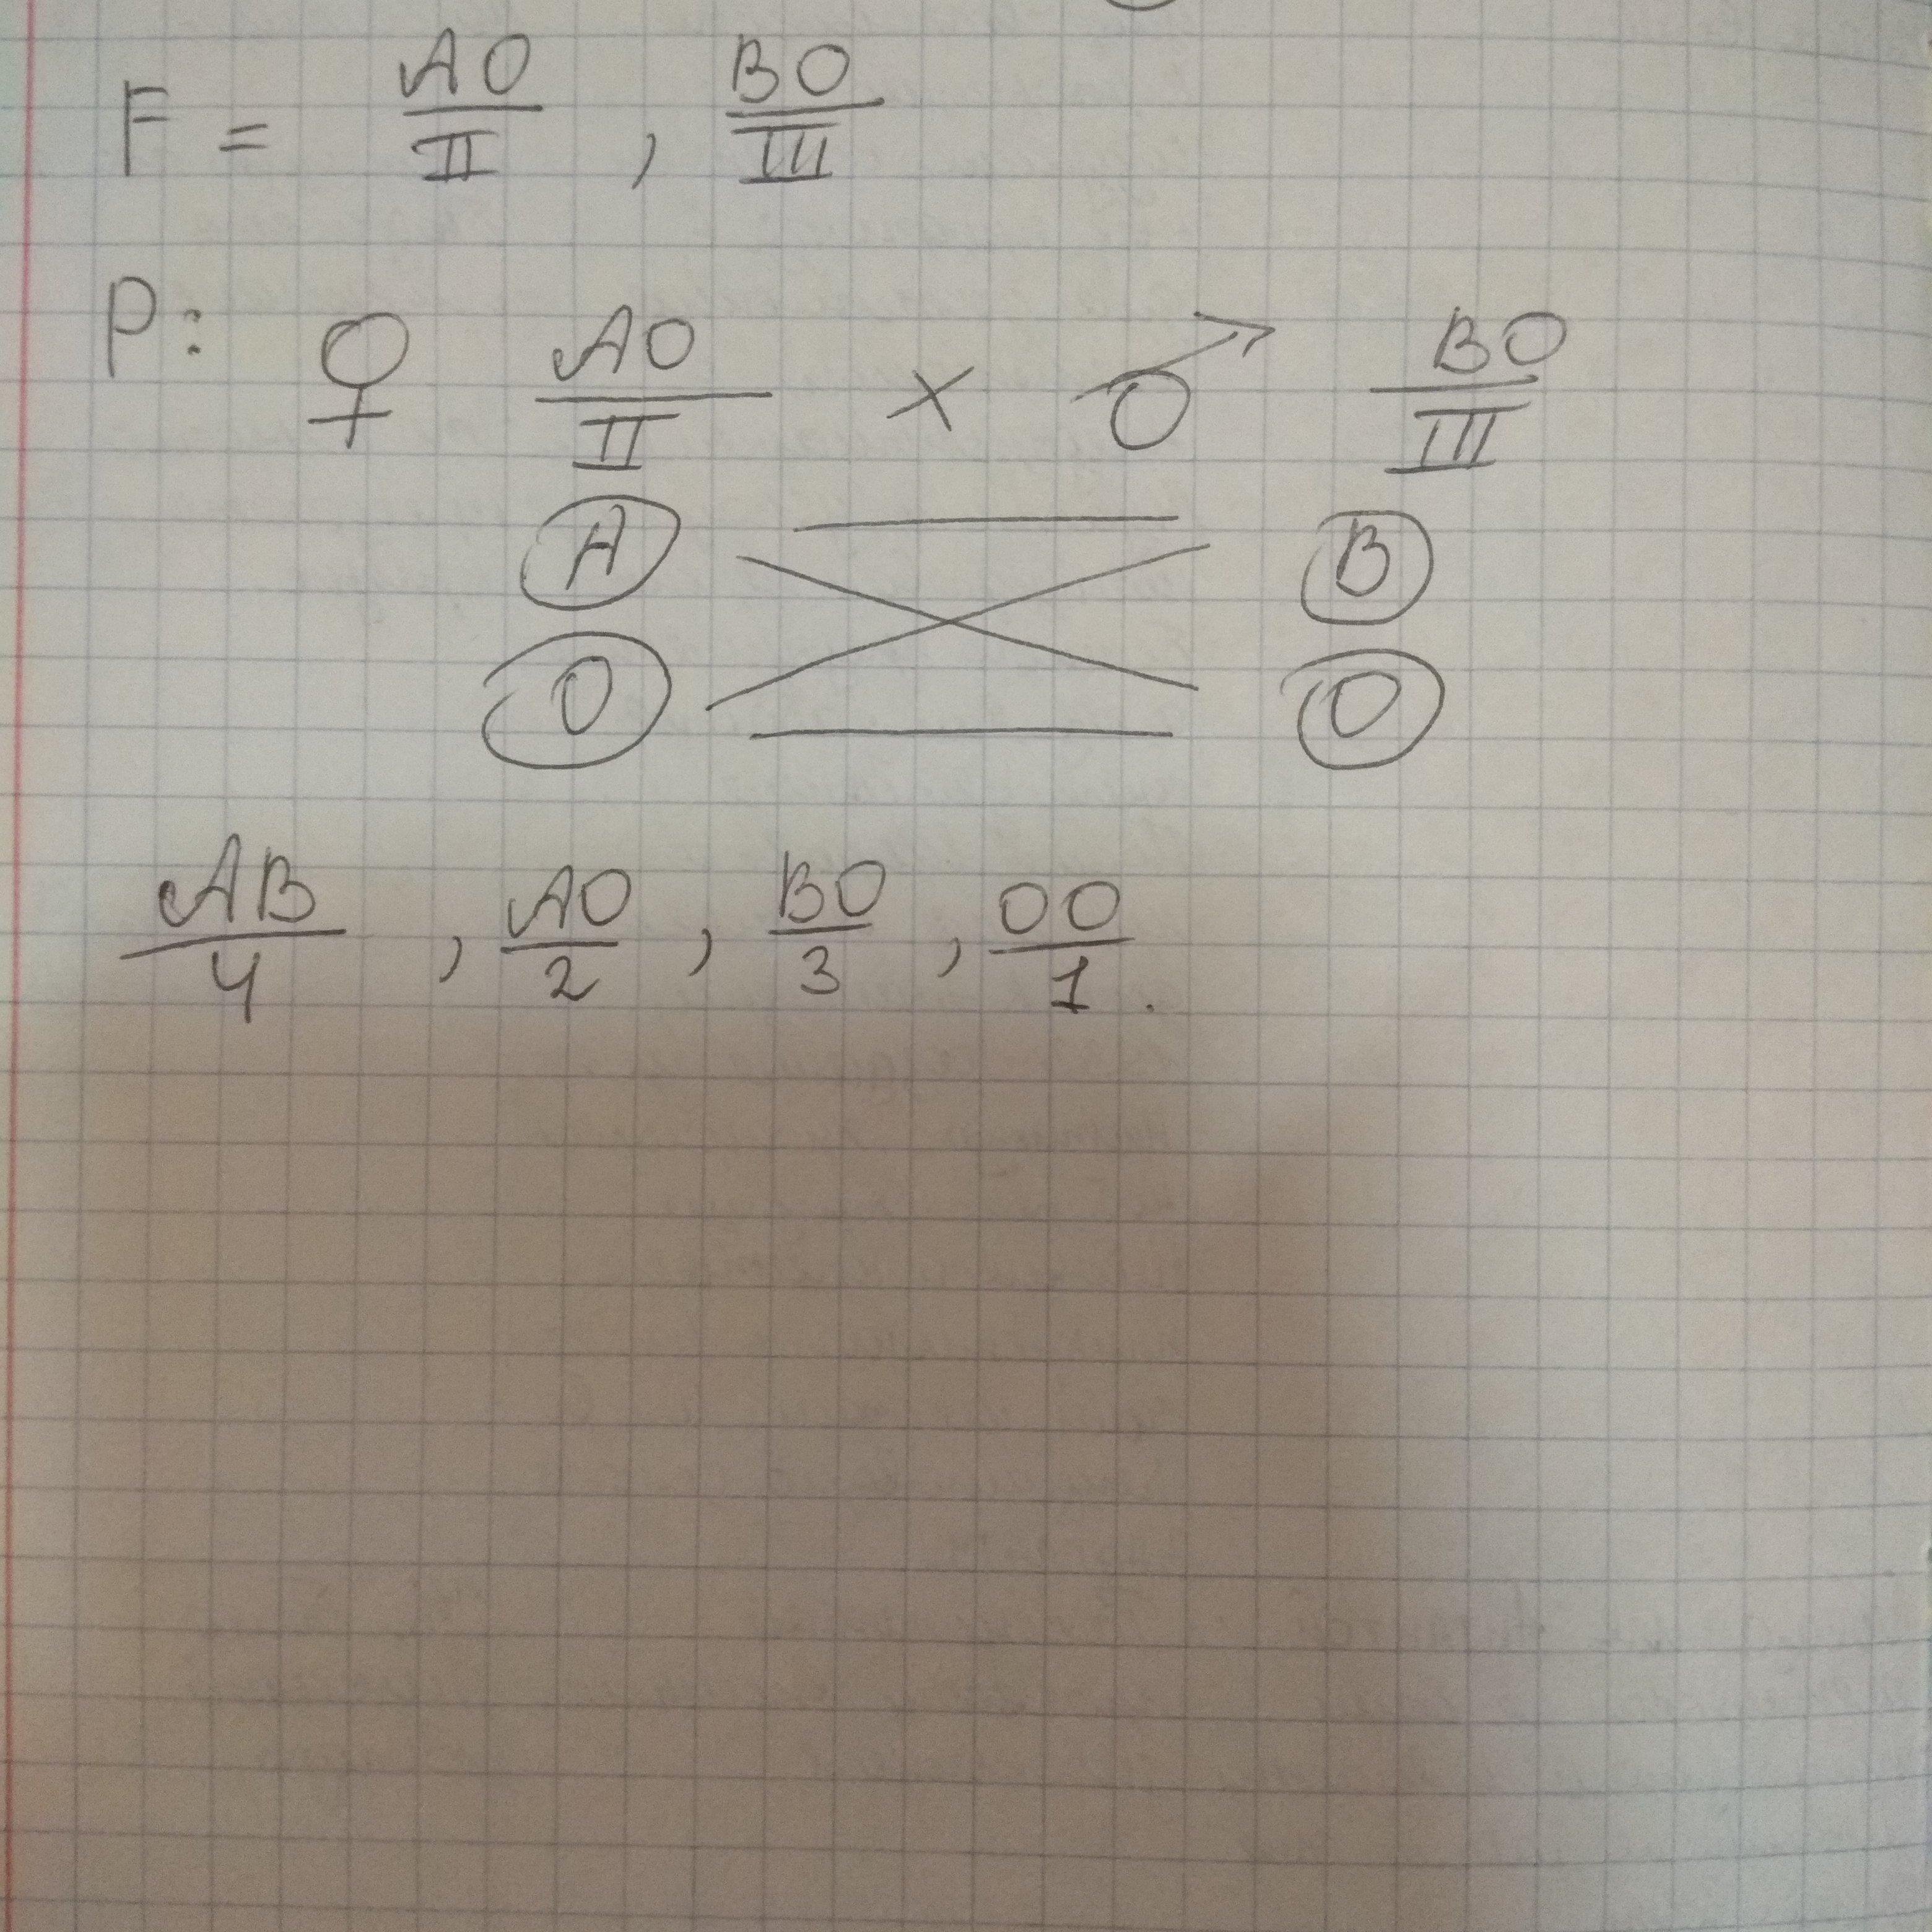 F = AO/II , BO/III
P: ♀ AO/II × ♂ BO/III
A B
O O
AB/4 , AO/2 , BO/3 , OO/1 .